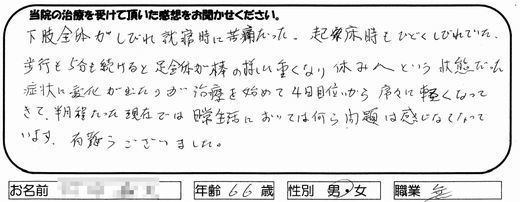 当院の治療を受けて頂いた感想をお聞かせください。
下肢全体がしびれ就寝時に苦痛だった。起床時もひどくしびれていた。
歩行も5分も続けると足全体が棒の様に重くなり休みへという状態だった
症状に変化が出たのが治療を始めて4日目位から序々に軽くなって
きて、半月程たった現在では日常生活においては何ら問題は感じなくなって
います。有難うございました。
お名前 年齢 66 歳 性別 男・女 職業 無